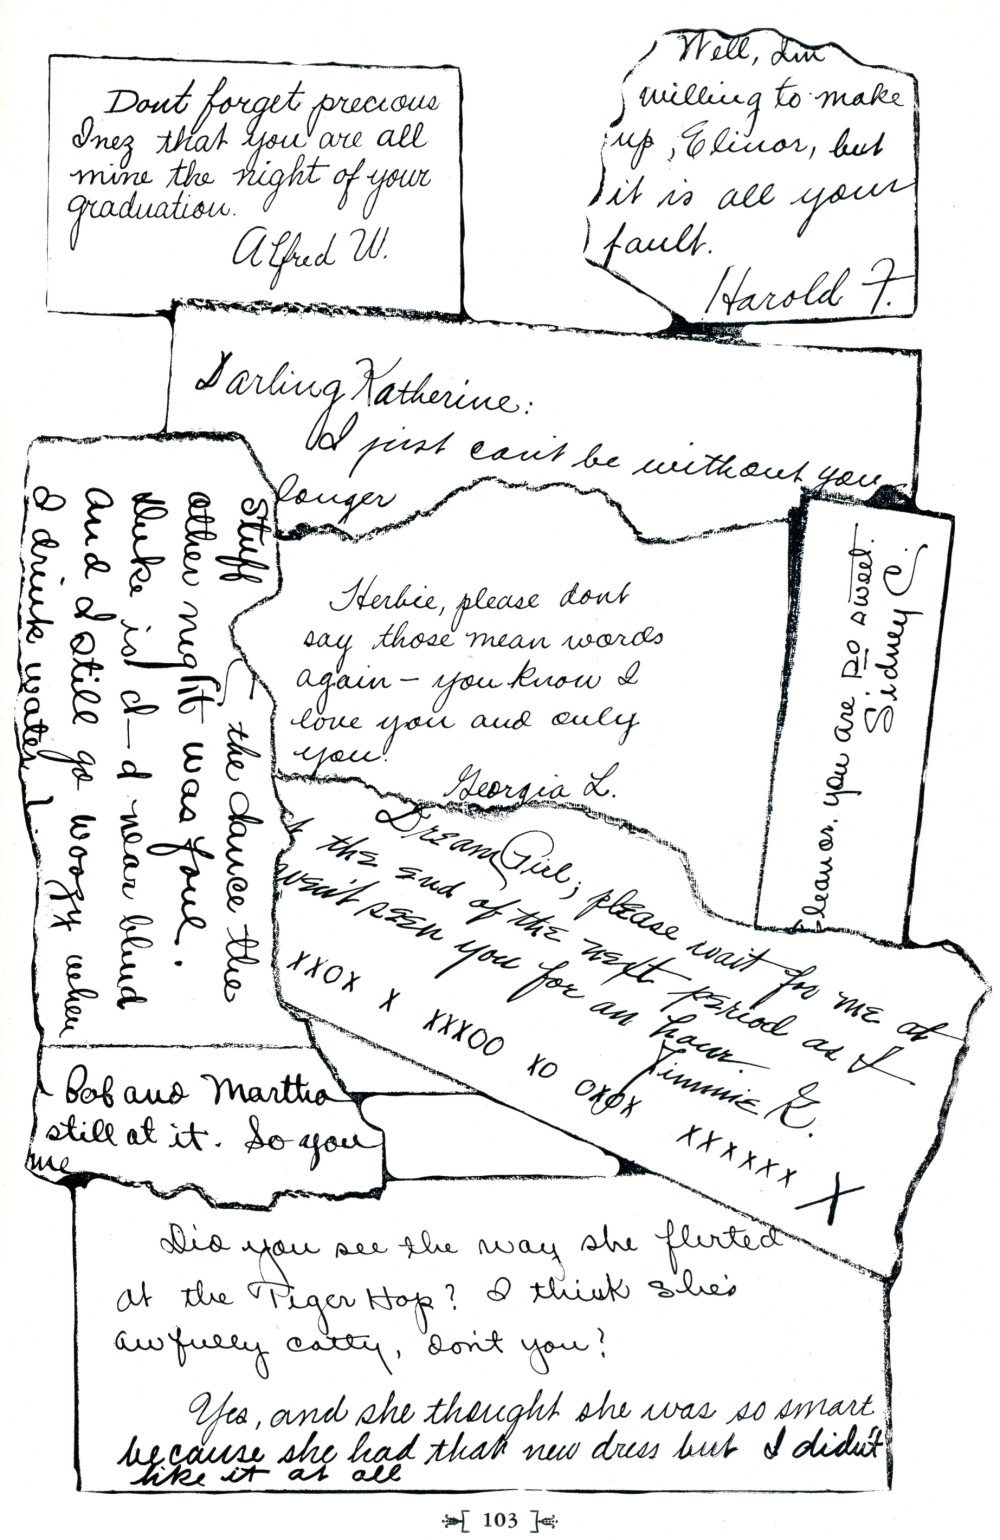 Dont forget precious
Inez that you are all
mine the night of your
graduation.
Alfred W.
Well, I'm
willing to make
up, Elinor, but
it is all your
fault.
Harold F.
Darling Katherine:
I just can't be without you
longer
Stuff — the dance the
other night was foul.
Duke is d—d near blind
and I still go woozy when
I drink water!
Bob and Martha
still at it. So you
me
Herbie, please dont
say those mean words
again — you know I
love you and only
you.
Georgia L.
Eleanor, you are so sweet.
Sidney C.
Dream Girl; please wait for me at
the end of the next period as I
haven't seen you for an hour.
Jimmie K.
XXOX X XXXOO XO OXOX XXXXXX X
Did you see the way she flirted
at the Tiger Hop? I think she's
awfully catty, don't you?
Yes, and she thought she was so smart
because she had that new dress but I didn't
like it at all
103